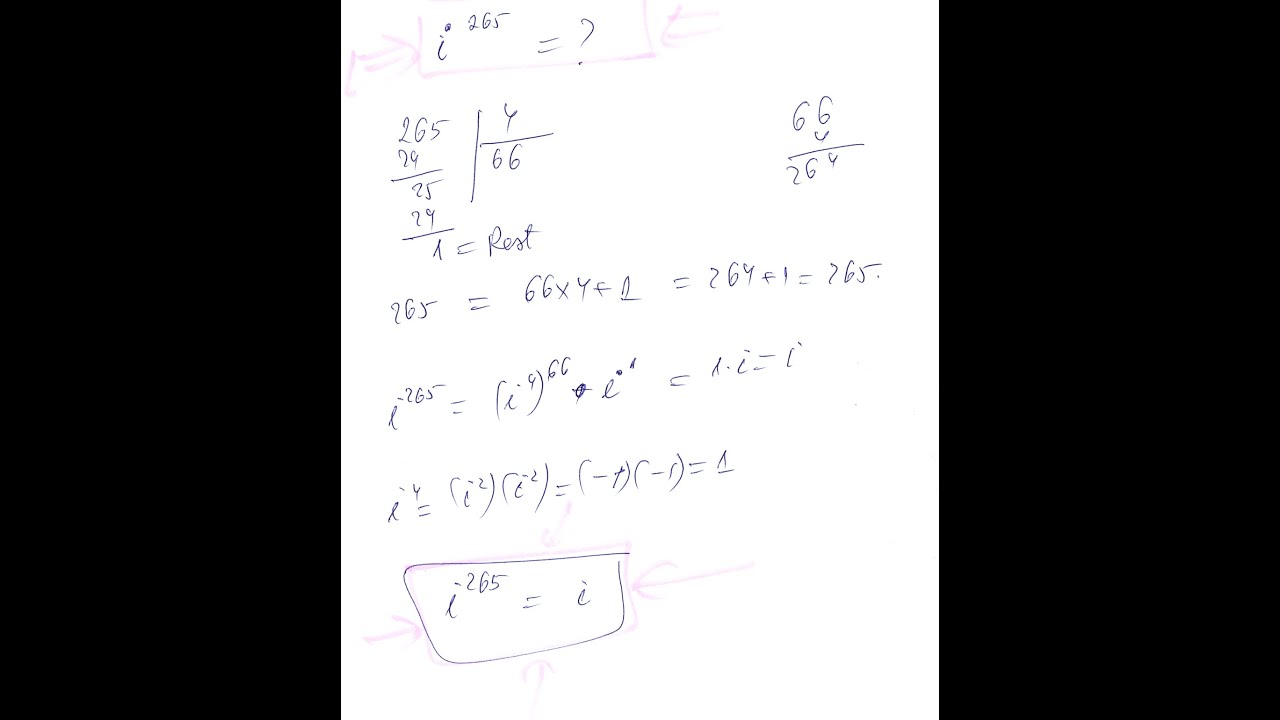 i^265 = ?
265 | 4
24 66
25
24
1 = Rest
66
4
264
265 = 66x4+1 = 264+1 = 265.
i^265 = (i^4)^66 • i^1 = 1.i = i
i^4 = (i^2)(i^2) = (-1)(-1) = 1
i^265 = i